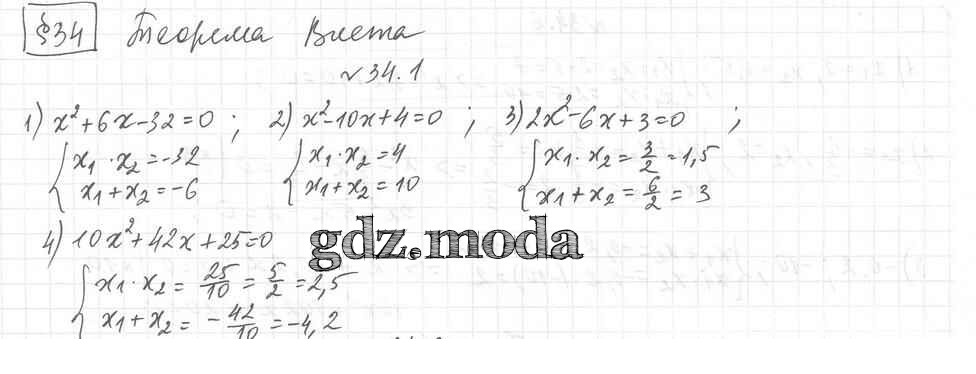 §34 Теорема Виета
№34.1
1) x²+6x-32=0 ; 2) x²-10x+4=0 ; 3) 2x²-6x+3=0 ;
{ x₁·x₂=-32 { x₁·x₂=4 { x₁·x₂=3/2=1,5
x₁+x₂=-6 x₁+x₂=10 x₁+x₂=6/2=3
4) 10x²+42x+25=0
gdz.moda
{ x₁·x₂=25/10=5/2=2,5
x₁+x₂=-42/10=-4,2